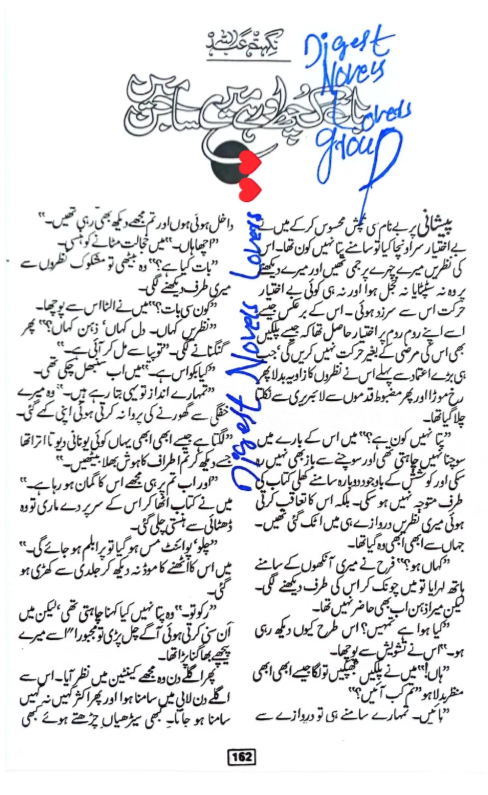 نگہت عبداللہ
Digest
Novels
Lovers
group
Digest Novels Lovers
پیشانی پر بے نام سی تپش محسوس کرکے میں نے
بے اختیار سر اونچا کیا تو سامنے پتا نہیں کون تھا۔ اس
کی نظریں میرے چہرے پر جمی تھیں اور میرے دیکھنے
پر وہ نہ سٹپٹایا نہ خجل ہوا اور نہ ہی کوئی بے اختیار
حرکت اس سے سرزد ہوئی۔ اس کے برعکس جیسے
اسے اپنے روم روم پر اختیار حاصل تھا کہ جیسے پلکیں
بھی اس کی مرضی کے بغیر حرکت نہیں کریں گی' جب
ہی بڑے اعتماد سے پہلے اس نے نظروں کا زاویہ بدلا پھر
رخ موڑا اور پھر مضبوط قدموں سے لائبریری سے نکلتا
چلا گیا تھا۔
"پتا نہیں کون ہے؟" میں اس کے بارے میں
سوچنا نہیں چاہتی تھی اور سوچنے سے باز بھی نہیں رہ
سکی اور کوشش کے باوجود دوبارہ سامنے کھلی کتاب کی
طرف متوجہ نہیں ہو سکی۔ بلکہ اس کا تعاقب کرتی
ہوئی میری نظریں دروازے ہی میں اٹک گئی تھیں۔
جہاں سے ابھی ابھی وہ گیا تھا۔
"کہاں ہو؟" فرح نے میری آنکھوں کے سامنے
ہاتھ لہرایا تو میں چونک کر اس کی طرف دیکھنے لگی۔
لیکن میرا ذہن اب بھی حاضر نہیں تھا۔
"کیا ہوا ہے تمہیں؟ اس طرح کیوں دیکھ رہی
ہو۔" اس نے تشویش سے پوچھا۔
"ہاں!" میں نے پلکیں جھپکیں تو لگا جیسے ابھی ابھی
منظر بدلا ہو "تم کب آئیں؟"
"ہائیں۔ تمہارے سامنے ہی تو دروازے سے
داخل ہوئی ہوں اور تم مجھے دیکھ بھی رہی تھیں۔"
"اچھا ہاں۔" میں خجالت مٹانے کو ہنسی۔
"بات کیا ہے؟" وہ بیٹھی تو مشکوک نظروں سے
میری طرف دیکھنے لگی۔
"کون سی بات؟" میں نے الٹا اس سے پوچھا۔
"نظریں کہاں۔ دل کہاں' ذہن کہاں؟" پھر
گنگنانے لگی۔ "تو پیا سے مل کر آئی ہے۔"
"کیا بکواس ہے۔" میں اب سنبھل چکی تھی۔
"تمہارے انداز تو یہی بتا رہے ہیں۔" وہ میرے
خفگی سے گھورنے کی پروا نہ کرتی ہوئی اپنی کہے گئی۔
"لگتا ہے جیسے ابھی ابھی یہاں کوئی یونانی دیوتا اترا تھا
جسے دیکھ کر تم اطراف کا ہوش بھلا بیٹھیں۔"
"اور اب تم پر ہی مجھے اس کا گمان ہو رہا ہے۔"
میں نے کتاب اٹھا کر اس کے سر پر دے ماری تو وہ
ڈھٹائی سے ہنستی چلی گئی۔
"چلو' پوائنٹ مس ہو گیا تو پرابلم ہو جائے گی۔"
میں اس کا اٹھنے کا موڈ نہ دیکھ کر جلدی سے کھڑی ہو
گئی۔
"رکو تو۔" وہ پتا نہیں کیا کہنا چاہتی تھی' لیکن میں
ان سنی کرتی ہوئی آگے چل پڑی تو مجبوراً اسے میرے
پیچھے بھاگنا پڑا تھا۔
پھر اگلے دن وہ مجھے کینٹین میں نظر آیا۔ اس سے
اگلے دن لابی میں سامنا ہوا اور پھر اکثر کہیں نہ کہیں
سامنا ہو جاتا۔ کبھی سیڑھیاں چڑھتے ہوئے کبھی
162